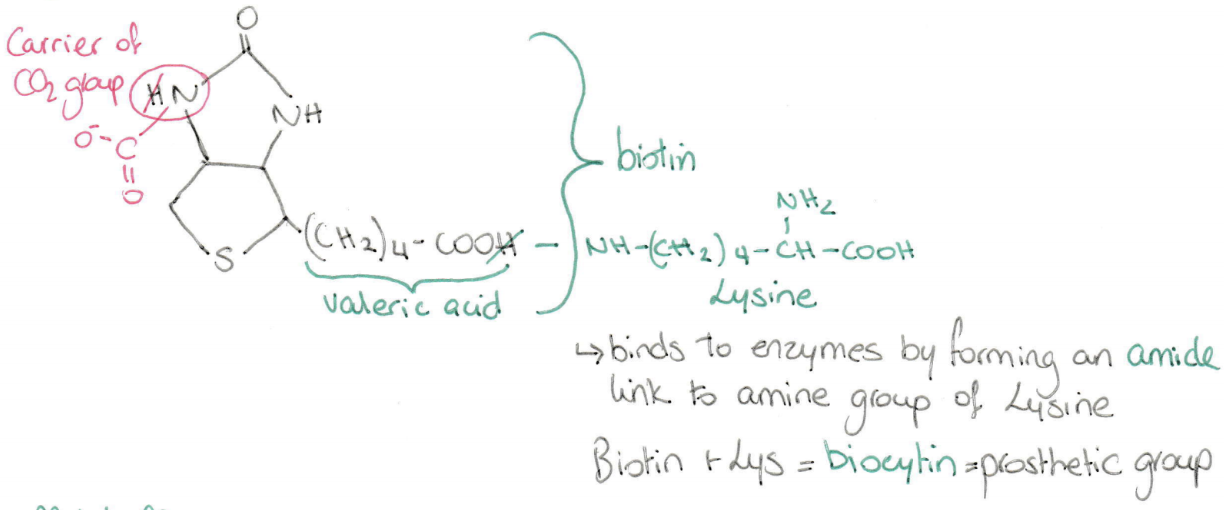 Carrier of
CO2 group
O
HN
NH
O⁻
C
O
S
(CH2)4-COOH
valeric acid
biotin
NH2
NH-(CH2)4-CH-COOH
Lysine
↳ binds to enzymes by forming an amide
link to amine group of Lysine
Biotin + Lys = biocytin = prosthetic group